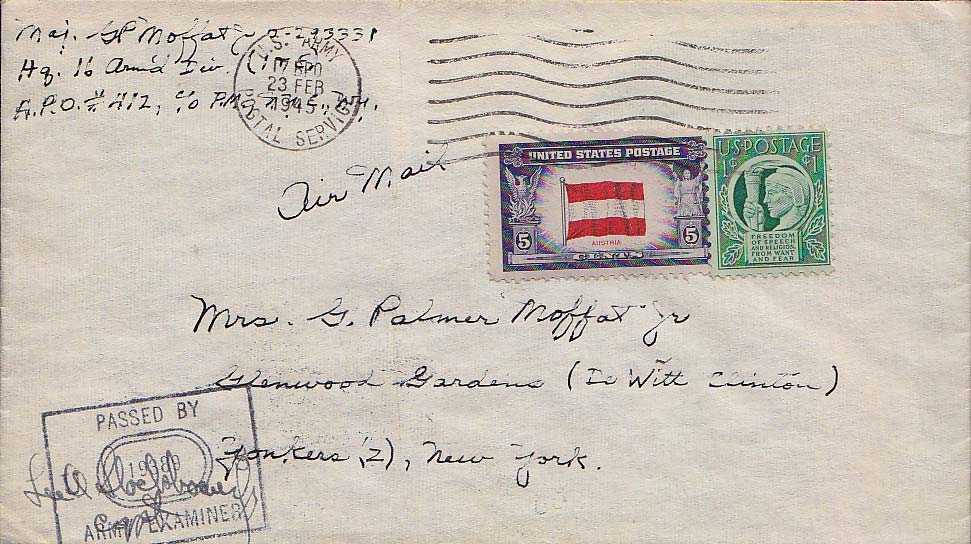 Maj. GP Moffat Jr O-293331
Hq. 16 Arm'd Div.
A.P.O. #412, c/o P.M.
U.S. ARMY
APO
23 FEB
1945
POSTAL SERVICE
Air Mail
UNITED STATES POSTAGE
5 5
AUSTRIA
CENTS
U.S. POSTAGE
1¢ ¢1
FREEDOM
OF SPEECH
AND RELIGION,
FROM WANT
AND FEAR
Mrs. G. Palmer Moffat Jr
Glenwood Gardens (De Witt Clinton)
Yonkers (2), New York.
PASSED BY
ARMY EXAMINER